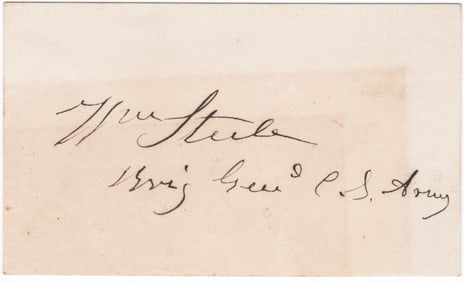 Wm Steele
Brig Genl C. S. Army